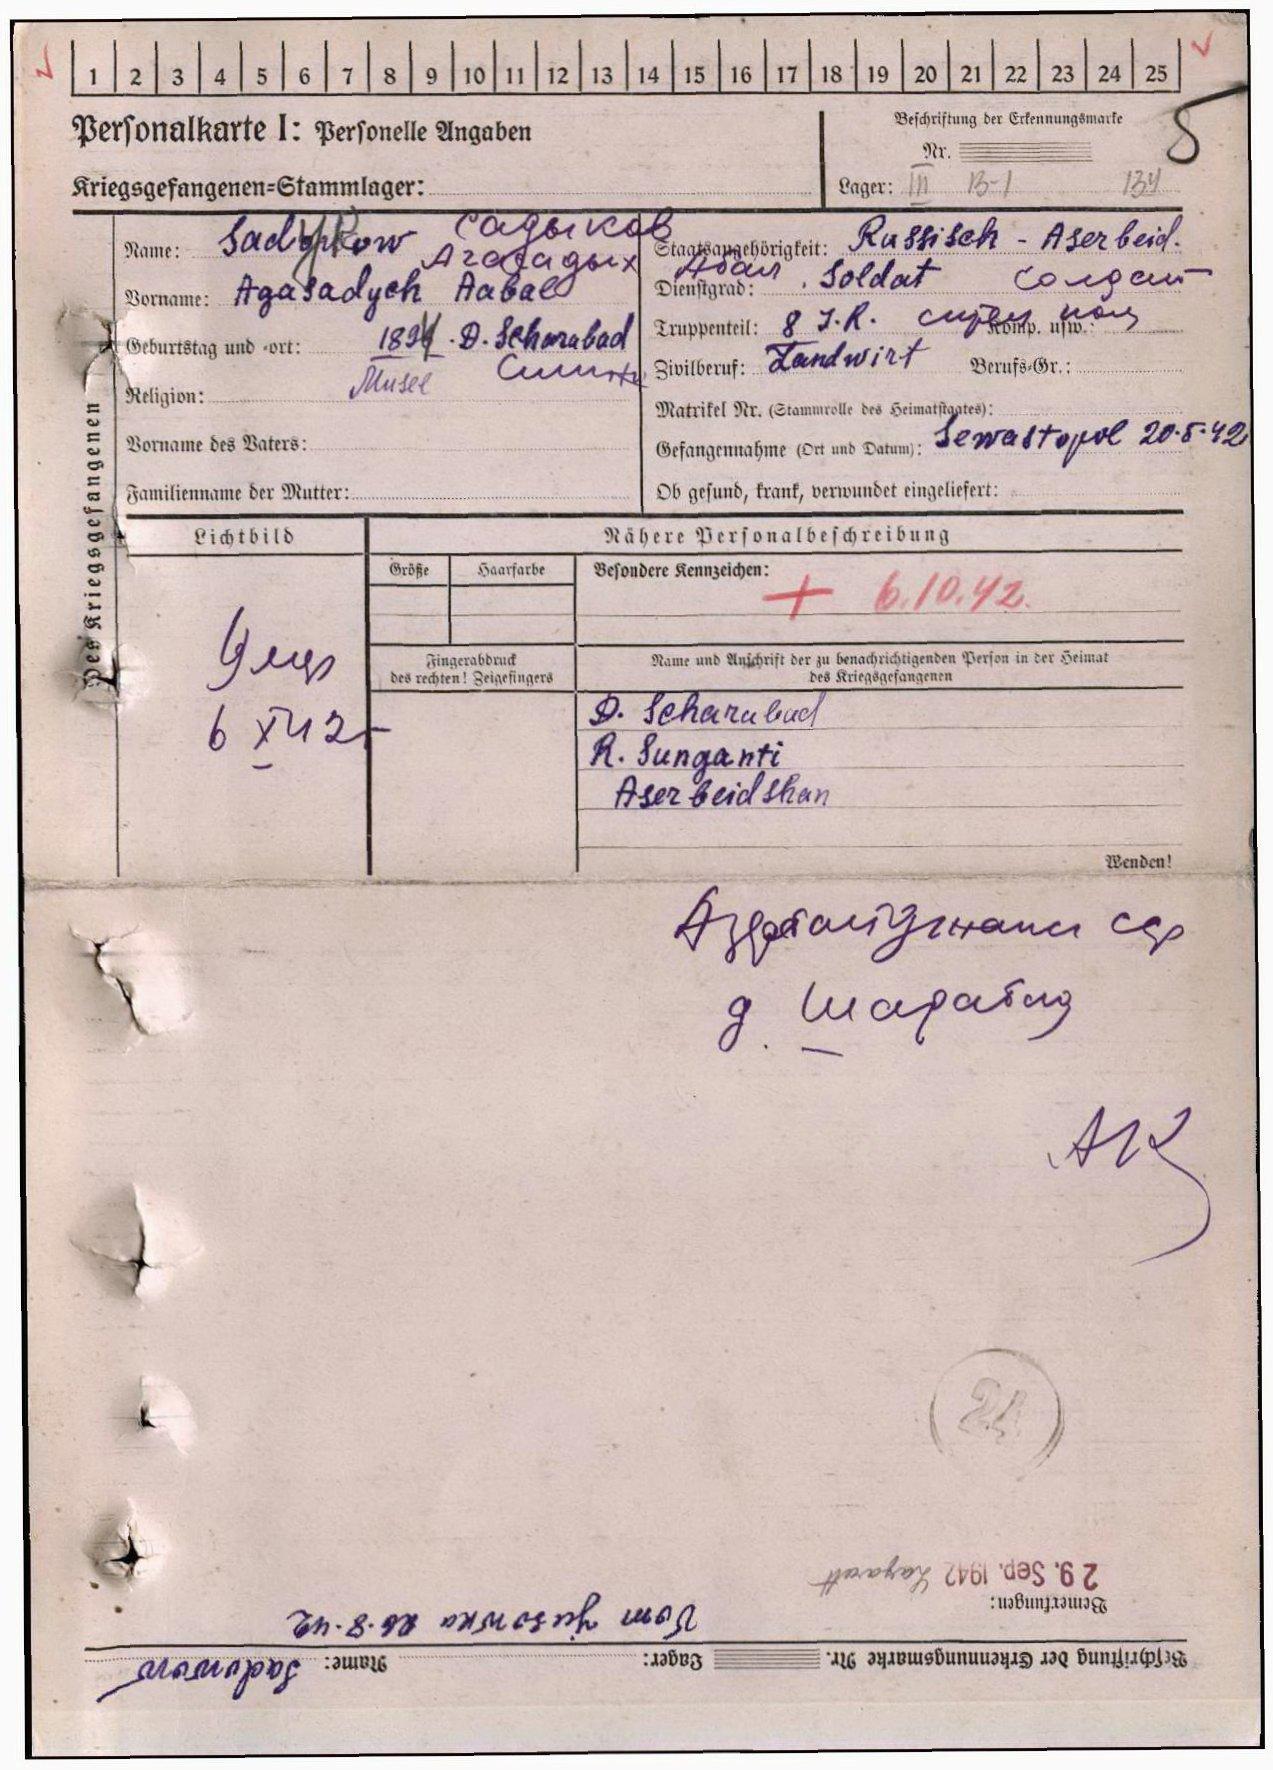 1 2 3 4 5 6 7 8 9 10 11 12 13 14 15 16 17 18 19 20 21 22 23 24 25
Personalkarte I: Personelle Angaben
Kriegsgefangenen-Stammlager:
Beschriftung der Erkennungsmarke
Nr.
Lager: III B-1 134
Des Kriegsgefangenen
Name: Садыков
Агасадых Абал
Vorname: Agasadych Aabal
Geburtstag und -ort: 1894 D. Scharabad
Religion: Musel
Vorname des Vaters:
Familienname der Mutter:
Staatsangehörigkeit: Russisch - Aserbeid.
Dienstgrad: Soldat солдат
Truppenteil: 8 I.R. Komp. usw.:
Zivilberuf: Landwirt Berufs-Gr.:
Matrikel Nr. (Stammrolle des Heimatstaates):
Gefangennahme (Ort und Datum): Sewastopol 20.5.42
Ob gesund, krank, verwundet eingeliefert:
Lichtbild
Nähere Personalbeschreibung
Größe Haarfarbe Besondere Kennzeichen:
+ 6.10.42.
Fingerabdruck
des rechten! Zeigefingers
Name und Anschrift der zu benachrichtigenden Person in der Heimat
des Kriegsgefangenen
Умер
D. Scharabad
R. Sunganti
Aserbeidshan
Wenden!
д. Шарабад
Beschriftung der Erkennungsmarke Nr. Lager: Name: Sadowow
Vom Jusowka 26.8.42
Bemerkungen:
29. Sep. 1942 Lazarett